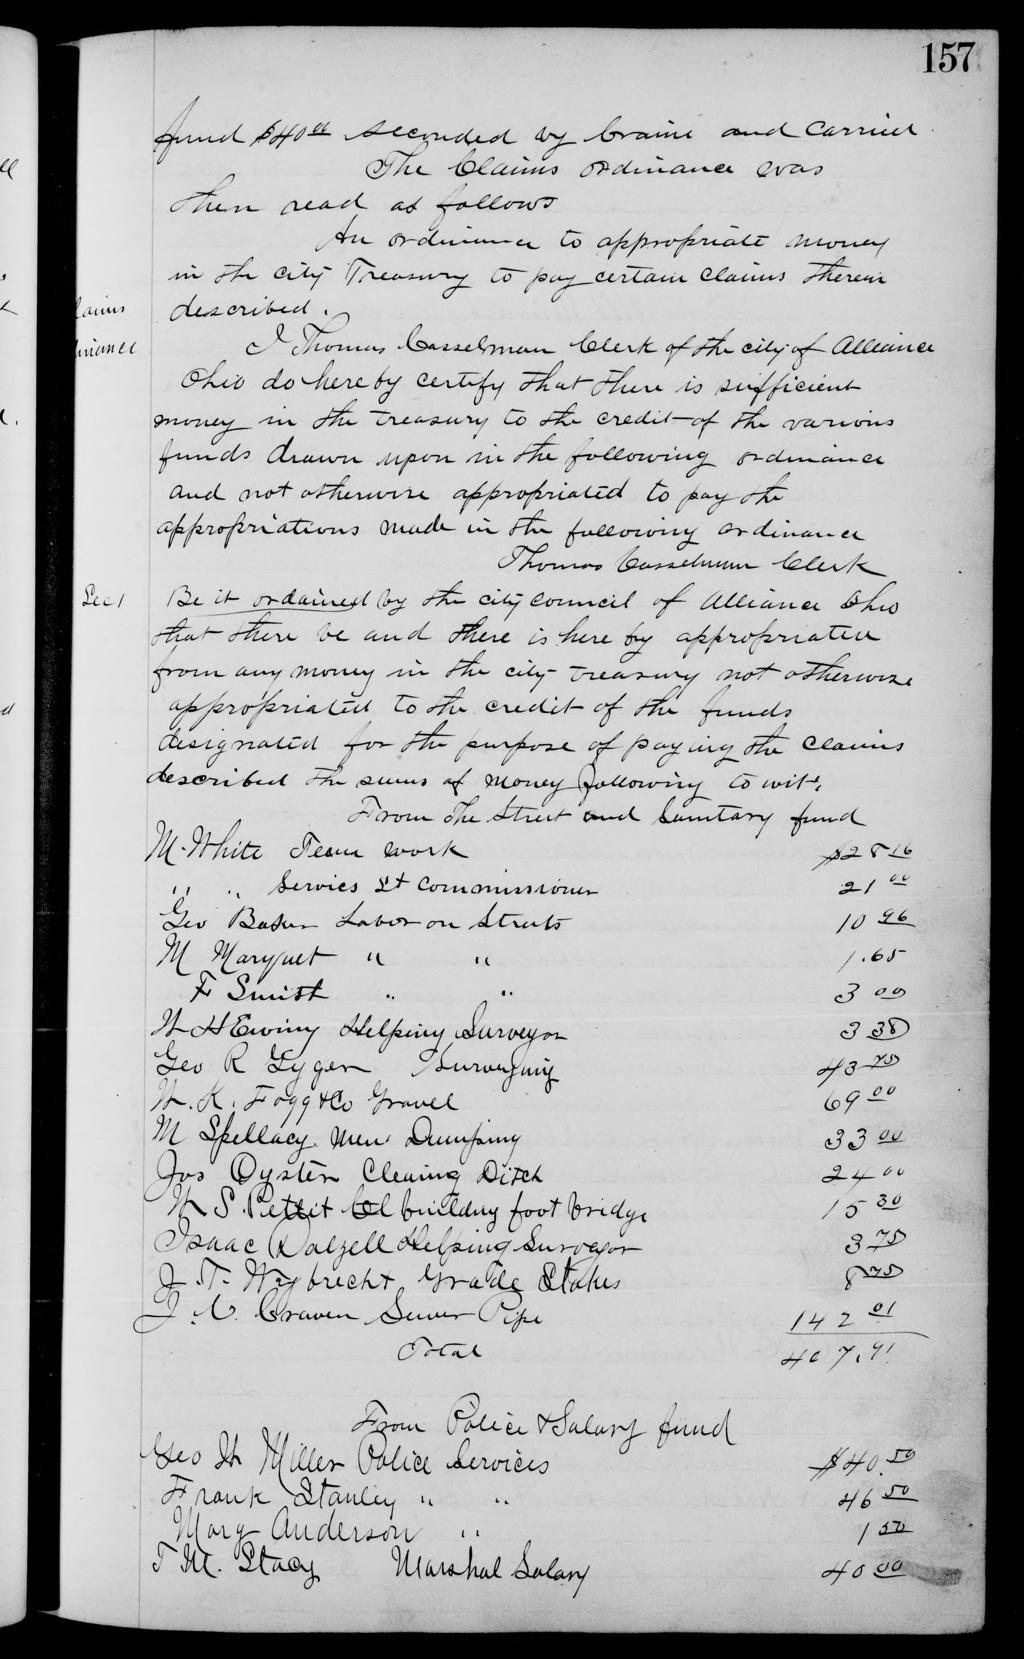 157
fund $40 00 seconded by Craine and Carried
The Claims ordinance was
then read as follows
An ordinance to appropriate money
in the city Treasury to pay certain claims therein
described.
I Thomas Casselman Clerk of the city of Alliance
Ohio do hereby certify that there is sufficient
money in the treasury to the credit of the various
funds drawn upon in the following ordinance
and not otherwise appropriated to pay the
appropriations made in the following ordinance
Thomas Casselman Clerk
Sec 1 Be it ordained by the city council of Alliance Ohio
that there be and there is here by appropriated
from any money in the city treasury not otherwise
appropriated to the credit of the funds
designated for the purpose of paying the claims
described the sums of money following to wit,
From The Street and Sanitary fund
M. White Team work $28 16
" " Servics St Commissioner 21 00
Geo Baker Labor on Streets 10 96
M Marquet " " 1.65
F Smith " " 3 00
W H Ewing Helping Surveyor 3 38
Geo R Gyger Surveying 43 75
W. K. Fogg & Co Gravel 69 00
M Spellacy men Dumping 33 00
Jos Oyster Cleaning Ditch 24 00
W S Pettit building foot bridge 15 30
Isaac Dalzell Helping Surveyor 3 75
J. T. Weybrecht Grade Stakes 8 75
J. C. Craven Sewer Pipe 142 01
Total 407.91
From Police & Salary fund
Geo W Miller Police Services $40.50
Frank Stanley " " 46 50
Mary Anderson " 1 50
T M. Stacy Marshal Salary 40 00